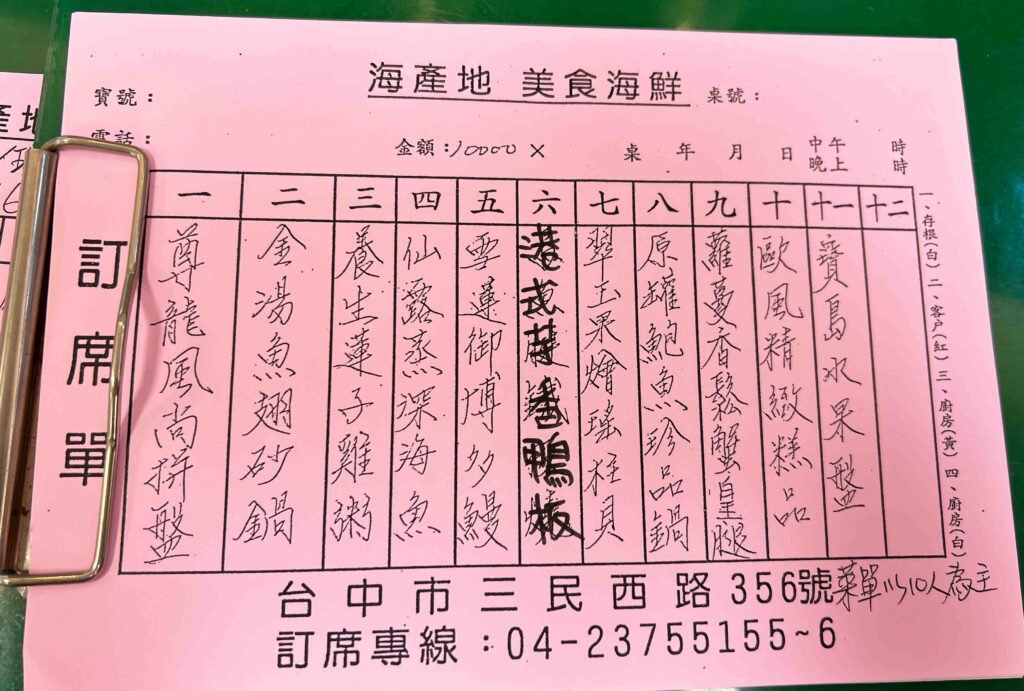 海產地 美食海鮮
寶號：
桌號：
電話：
金額：10000 × 桌 年 月 日 中午 晚上 時 時
訂席單
一 二 三 四 五 六 七 八 九 十 十一 十二
尊龍風尚拼盤
金湯魚翅砂鍋
養生蓮子雞粥
仙露蒸深海魚
雪蓮御博多鰻
港式芋香鴨板
翠玉果燴瑤柱貝
原罐鮑魚珍品鍋
蘿蔓香鬆蟹皇腿
歐風精緻糕品
寶島水果盤
一、存根(白) 二、客戶(紅) 三、廚房(黃) 四、廚房(白)
台中市三民西路356號
菜單以10人為主
訂席專線：04-23755155~6
產地